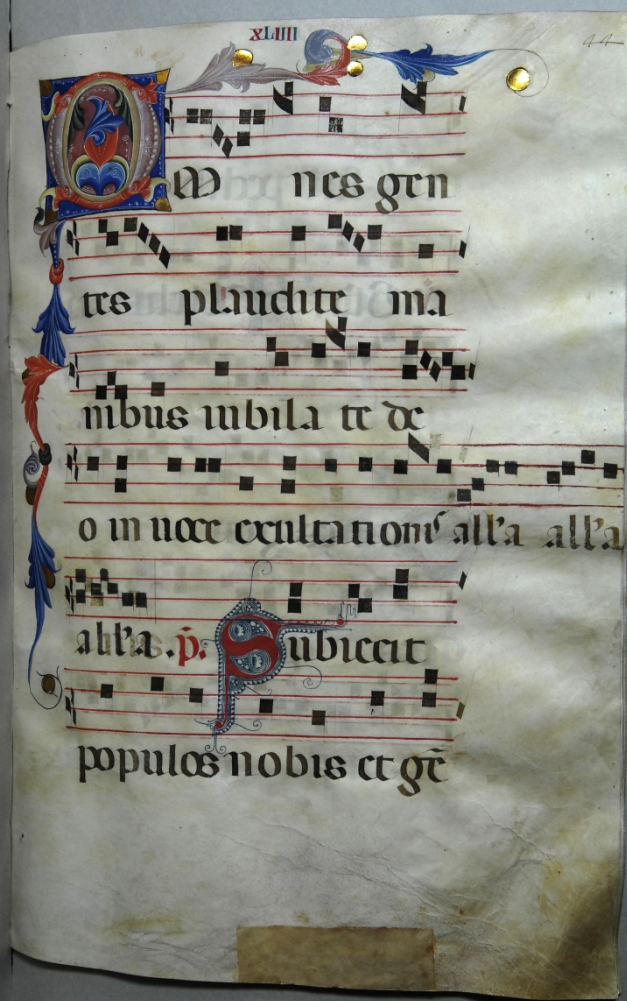 XLIIII
44
Omnes gen
tes plaudite ma
nibus iubila te de
o in uoce exultationis all'a all'a
all'a. p. Subiecit
populos nobis et gē